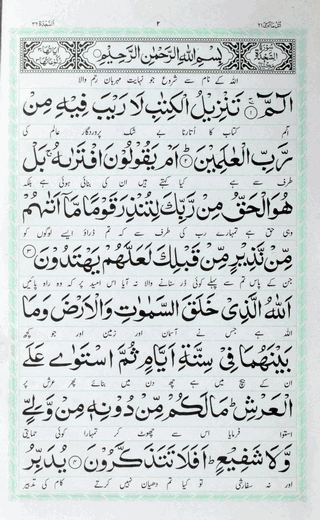 السجدة ٣٢
٢
اتل ما اوحی ٢١
بِسْمِ اللهِ الرَّحْمٰنِ الرَّحِيْمِ
اللہ کے نام سے شروع جو نہایت مہربان رحم والا
الٓمّٓ ۚ﴿١﴾ تَنْزِيْلُ الْكِتٰبِ لَا رَيْبَ فِيْهِ مِنْ
الٓم کتاب کا اُتارنا بے شک پروردگار عالم کی
رَّبِّ الْعٰلَمِيْنَ ﴿٢﴾ اَمْ يَقُوْلُوْنَ افْتَرٰىهُ ۚ بَلْ
طرف سے ہے کیا کہتے ہیں ان کی بنائی ہوئی ہے بلکہ
هُوَ الْحَقُّ مِنْ رَّبِّكَ لِتُنْذِرَ قَوْمًا مَّاۤ اَتٰىهُمْ
وہی حق ہے تمہارے رب کی طرف سے کہ تم ڈراؤ ایسے لوگوں کو
مِّنْ نَّذِيْرٍ مِّنْ قَبْلِكَ لَعَلَّهُمْ يَهْتَدُوْنَ ﴿٣﴾
جن کے پاس تم سے پہلے کوئی ڈر سنانے والا نہ آیا اس امید پر کہ وہ راہ پائیں
اَللهُ الَّذِيْ خَلَقَ السَّمٰوٰتِ وَالْاَرْضَ وَمَا
اللہ ہے جس نے آسمان اور زمین اور جو کچھ
بَيْنَهُمَا فِيْ سِتَّةِ اَيَّامٍ ثُمَّ اسْتَوٰى عَلَى
ان کے بیچ میں ہے چھ دن میں بنائے پھر عرش پر
الْعَرْشِ ؕ مَا لَكُمْ مِّنْ دُوْنِهٖ مِنْ وَّلِيٍّ
استوا فرمایا اس سے چھوٹ کر تمہارا کوئی حمایتی
وَّلَا شَفِيْعٍ ؕ اَفَلَا تَتَذَكَّرُوْنَ ﴿٤﴾ يُدَبِّرُ
اور نہ سفارشی تو کیا تم دھیان نہیں کرتے کام کی تدبیر